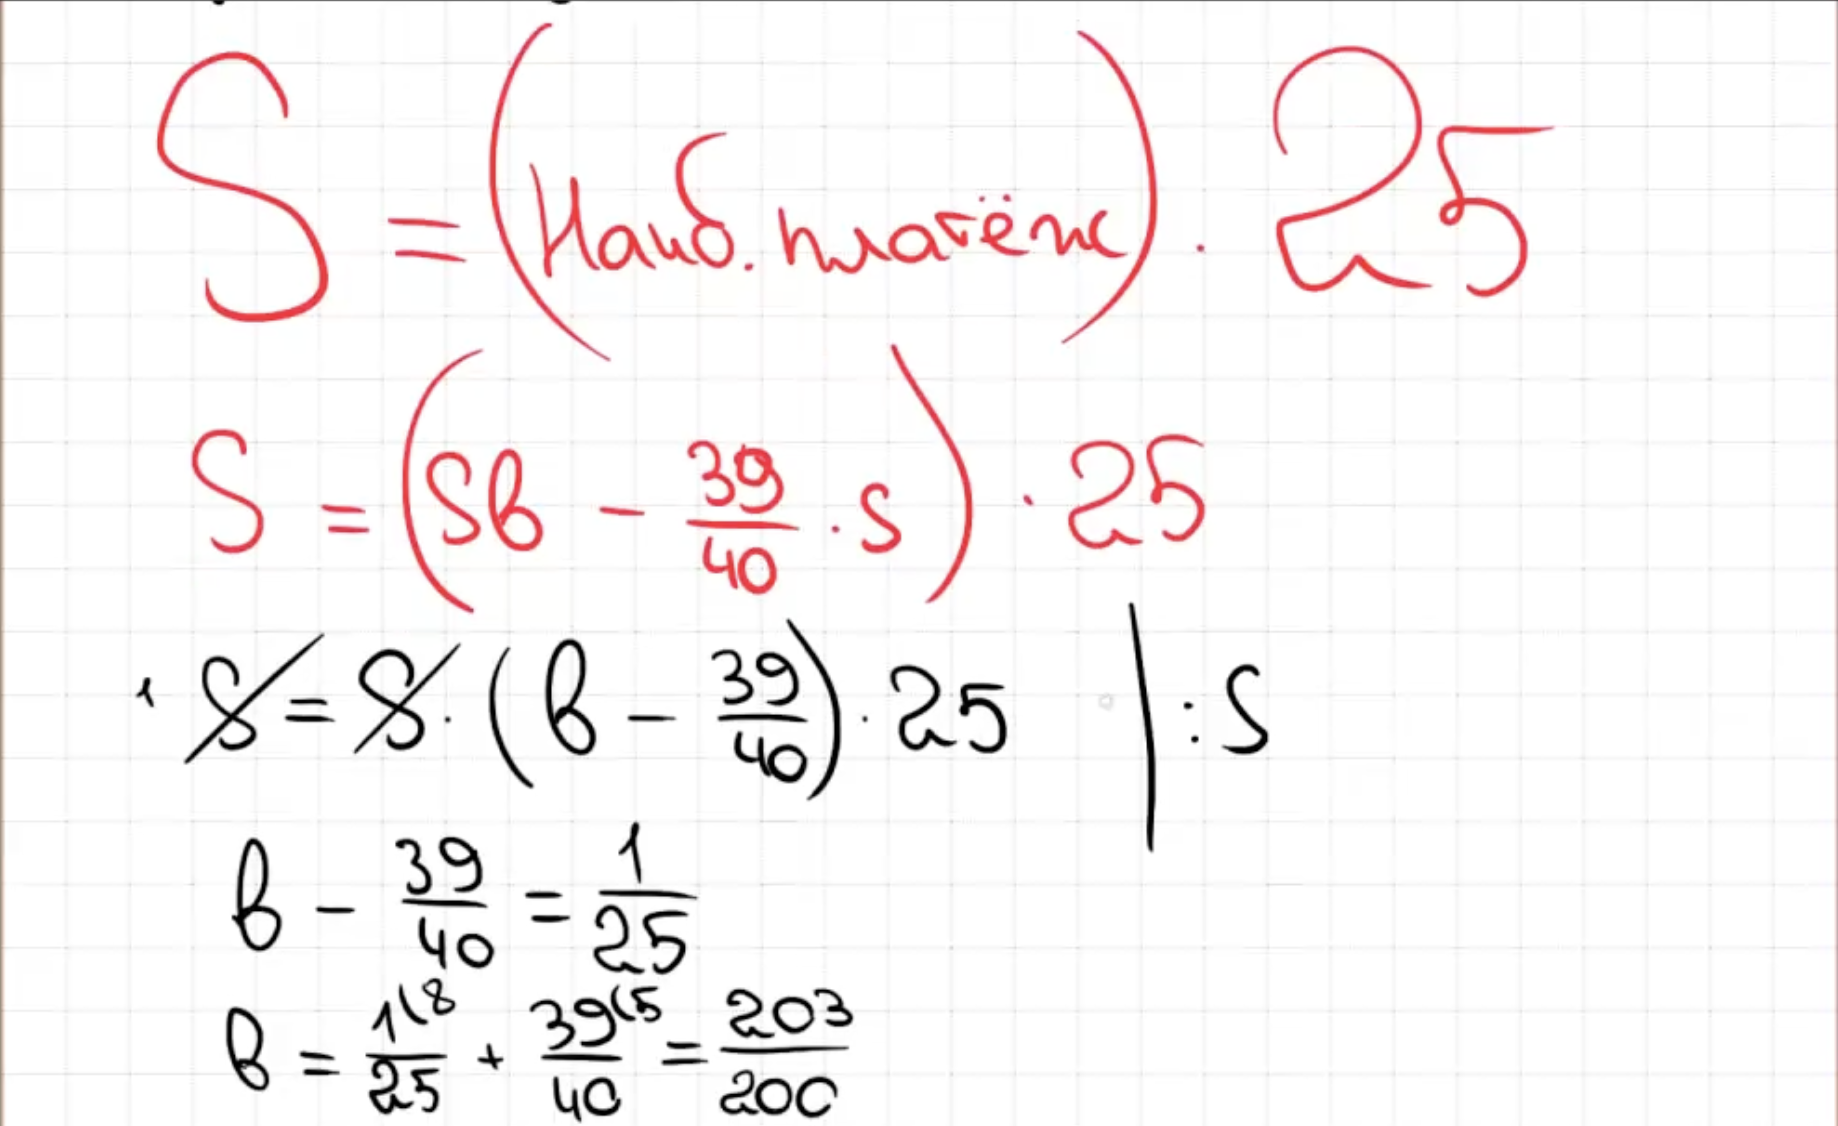 S = (Наиб. платёж) · 25
S = (Sb - 39/40 · S) · 25
1 S = S · (b - 39/40) · 25 | : S
b - 39/40 = 1/25
b = 1(8/25 + 39(5/40 = 203/200